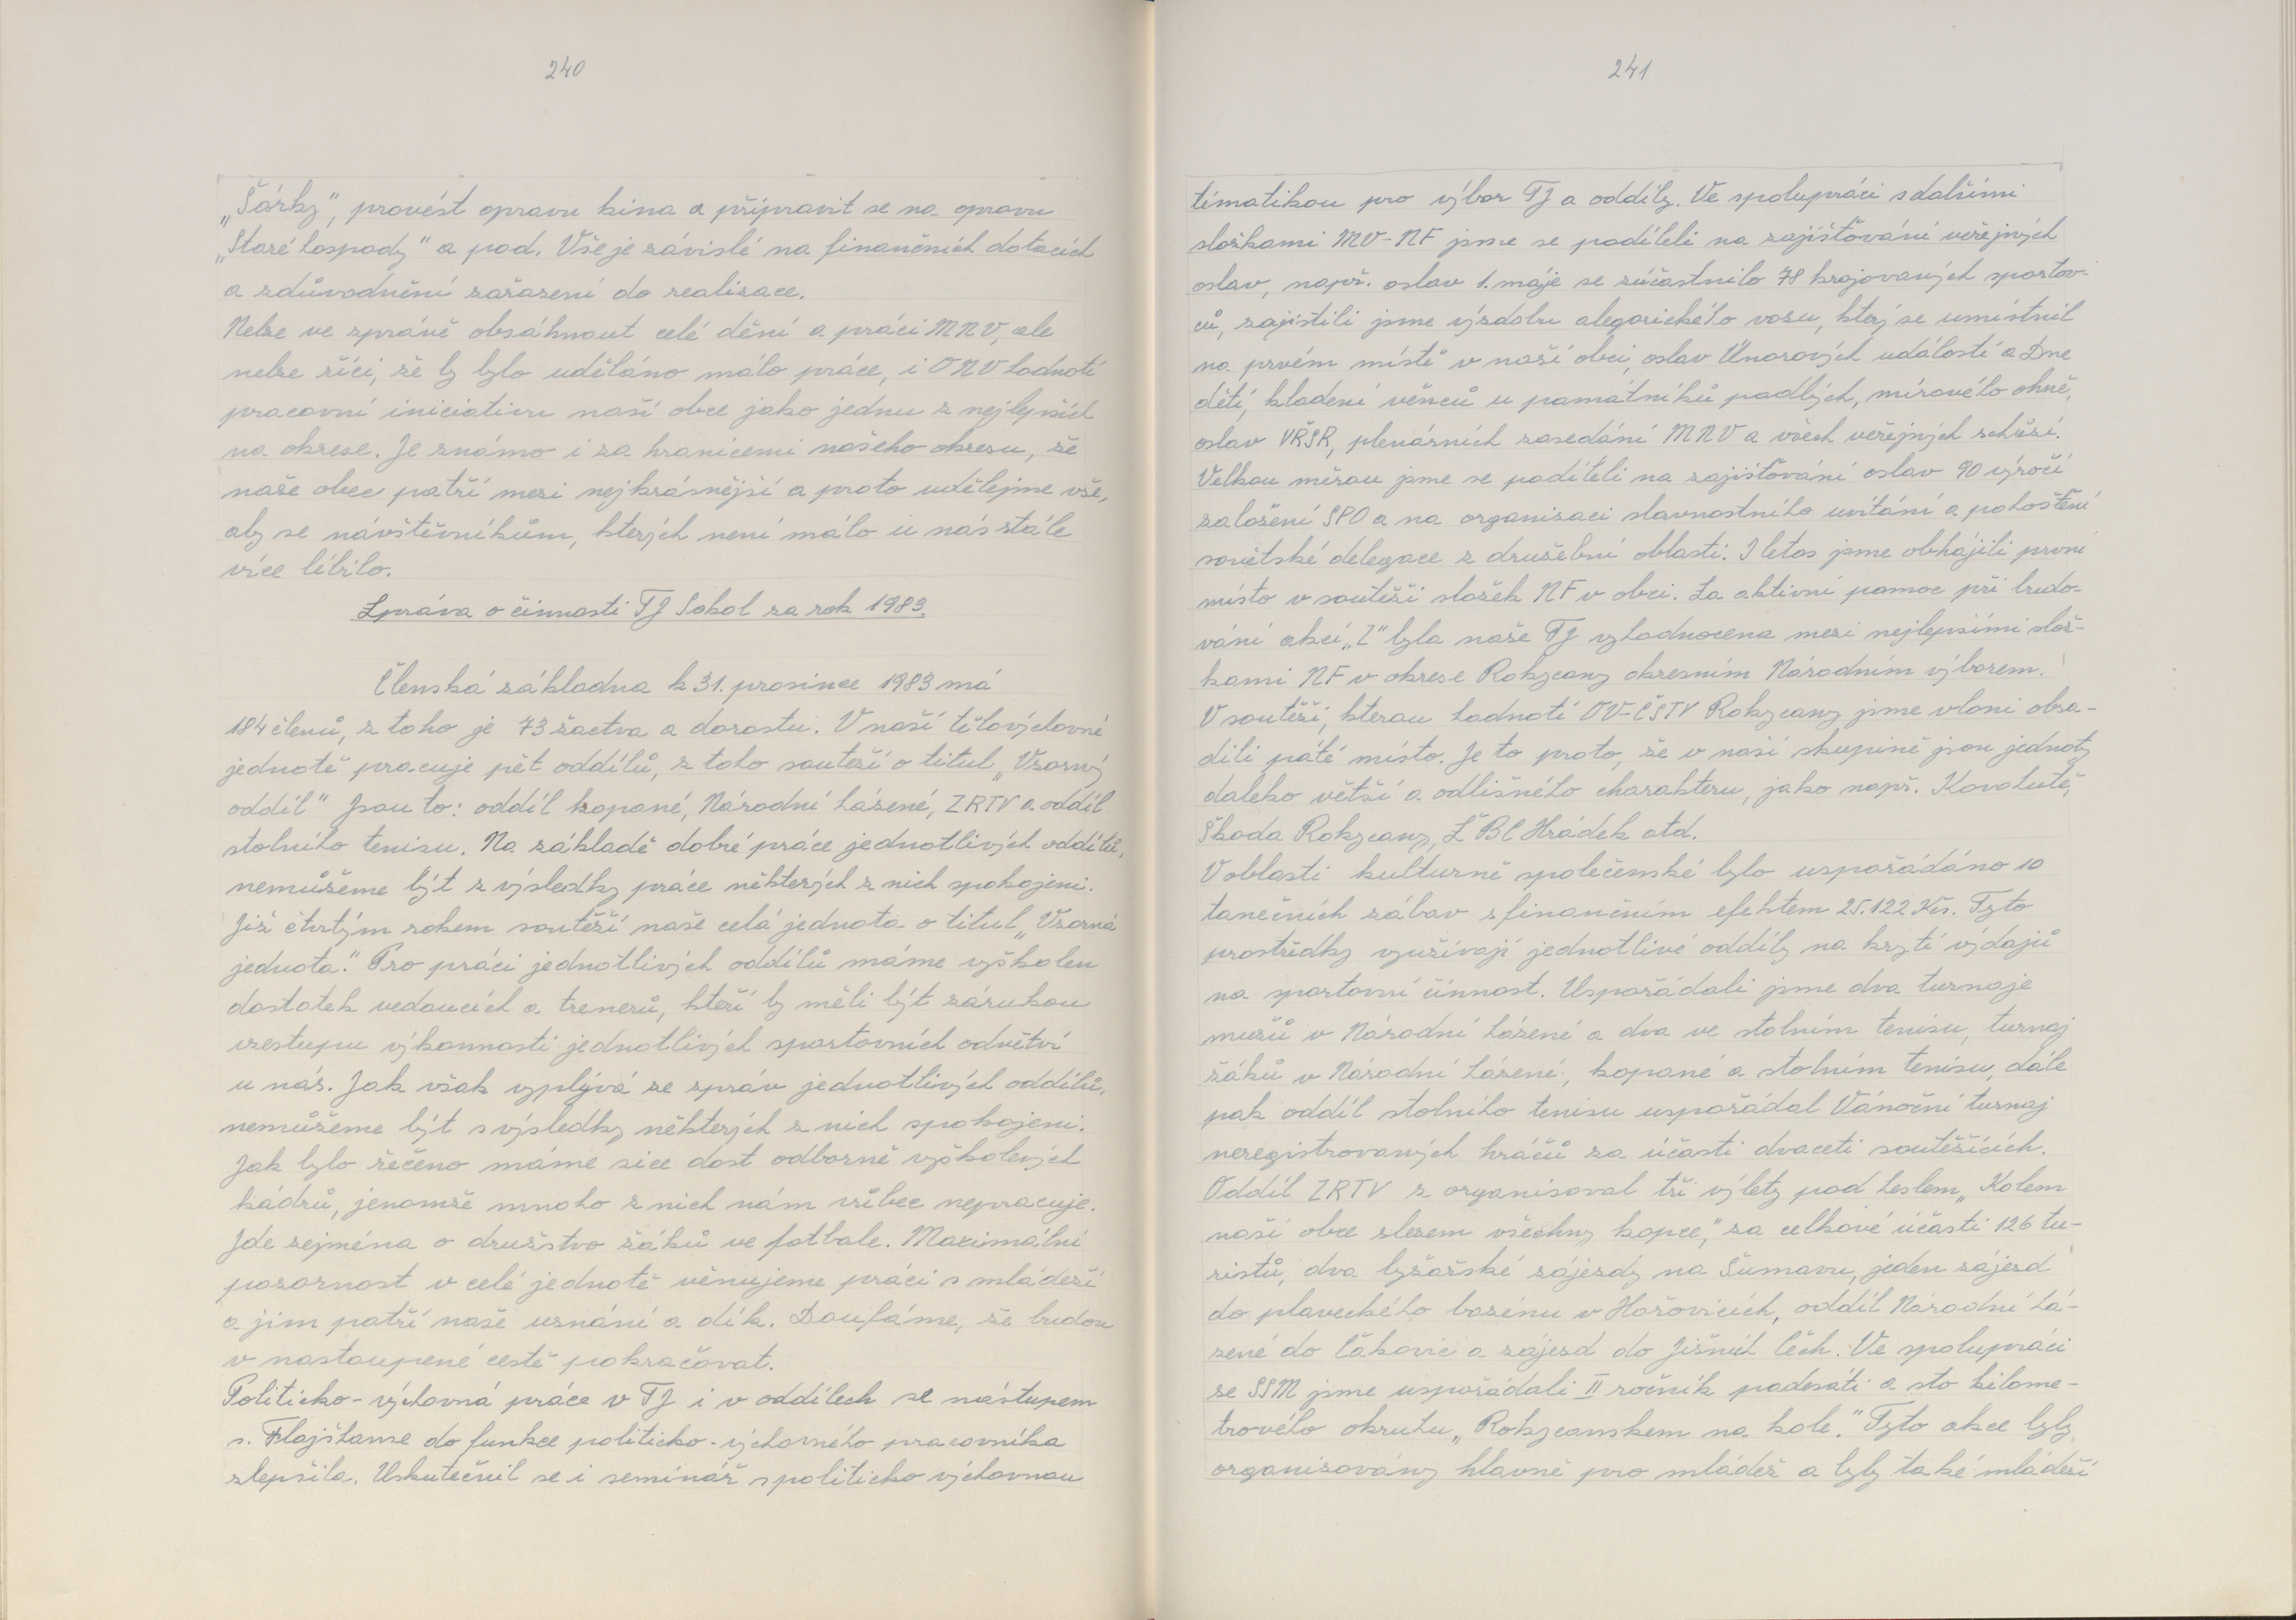 240
„Šárky", provést opravu kina a připravit se na opravu
„Staré hospody" a pod. Vše je závislé na finančních dotacích
a zdůvodnění zařazení do realizace.
Nelze ve zprávě obsáhnout celé dění a práci MNV, ale
nelze říci, že by bylo uděláno málo práce, i ONV hodnotí
pracovní iniciativu naší obce jako jednu z nejlepších
na okrese. Je známo i za hranicemi našeho okresu, že
naše obec patří mezi nejkrásnější a proto udělejme vše,
aby se návštěvníkům, kterých není málo u nás stále
více líbilo.
Zpráva o činnosti TJ Sokol za rok 1983.
Členská základna k 31. prosince 1983 má
184 členů, z toho je 73 žactva a dorostu. V naší tělovýchovné
jednotě pracuje pět oddílů, z toho soutěží o titul „Vzorný
oddíl" Jsou to: oddíl kopané, Národní házené, ZRTV a oddíl
stolního tenisu. Na základě dobré práce jednotlivých oddílů,
nemůžeme být z výsledky práce některých z nich spokojeni.
Již čtvrtým rokem soutěží naše celá jednota o titul „Vzorná
jednota." Pro práci jednotlivých oddílů máme vyškolen
dostatek vedoucích a trenerů, kteří by měli být zárukou
vzestupu výkonnosti jednotlivých sportovních odvětví
u nás. Jak však vyplývá ze zpráv jednotlivých oddílů,
nemůžeme být s výsledky některých z nich spokojeni.
Jak bylo řečeno máme sice dost odborně vyškolených
kádrů, jenomže mnoho z nich nám vůbec nepracuje.
Jde zejména o družstvo žáků ve fotbale. Maximální
pozornost v celé jednotě věnujeme práci s mládeží
a jim patří naše uznání a dík. Doufáme, že budou
v nastoupené cestě pokračovat.
Politicko-výchovná práce v TJ i v oddílech se nástupem
s. Flajšhanse do funkce politicko-výchovného pracovníka
zlepšila. Uskutečnil se i seminář s politicko výchovnou
241
tématikou pro výbor TJ a oddíly. Ve spolupráci s dalšími
složkami MV-NF jsme se podíleli na zajišťování veřejných
oslav, např. oslav 1. máje se zúčastnilo 78 krojovaných sportov-
ců, zajistili jsme výzdobu alegorického vozu, který se umístnil
na prvém místě v naší obci, oslav Únorových událostí a Dne
dětí, kladení věnců u památníků padlých, mírového ohně,
oslav VŘSR, plenárních zasedání MNV a všech veřejných schůzí.
Velkou měrou jsme se podíleli na zajišťování oslav 90 výročí
založení SPO a na organizaci slavnostního uvítání a pohoštění
sovětské delegace z družební oblasti. I letos jsme obhájili první
místo v soutěži složek NF v obci. Za aktivní pomoc při budo-
vání akcí „Z" byla naše TJ vyhodnocena mezi nejlepšími slož-
kami NF v okrese Rokycany okresním Národním výborem.
V soutěži, kterou hodnotí OV-ČSTV Rokycany jsme vloni obsa-
dili páté místo. Je to proto, že v naší skupině jsou jednoty
daleko větší a odlišného charakteru, jako např. Kovohutě,
Škoda Rokycany, ŽBC Hrádek atd.
V oblasti kulturně společenské bylo uspořádáno 10
tanečních zábav s finančním efektem 25.122 Kčs. Tyto
prostředky využívají jednotlivé oddíly na krytí výdajů
na sportovní činnost. Uspořádali jsme dva turnaje
mužů v Národní házené a dva ve stolním tenisu, turnaj
žáků v Národní házené, kopané a stolním tenisu, dále
pak oddíl stolního tenisu uspořádal Vánoční turnaj
neregistrovaných hráčů za účasti dvaceti soutěžících.
Oddíl ZRTV z organisoval tři výlety pod heslem „Kolem
naší obce slezem všechny kopce," za celkové účasti 126 tu-
ristů, dva lyžařské zájezdy na Šumavu, jeden zájezd
do plaveckého bazénu v Hořovicích, oddíl Národní há-
zené do Čákovic a zájezd do Jižních Čech. Ve spolupráci
se SSM jsme uspořádali II ročník padesáti a sto kilome-
trového okruhu „Rokycanskem na kole." Tyto akce byly
organizovány hlavně pro mládež a byly také mládeží